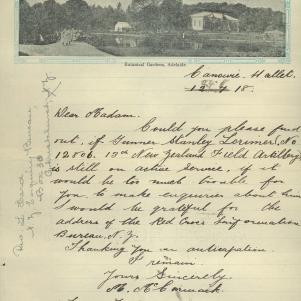 Botanical Gardens, Adelaide
Canowie. Hallet.
18.
Dear Madam.
Could you please find
out, if Gunner Stanley Lorimer, No
12506. 13th New Zealand Field Artillery
is still on active service, if it
would be too much trouble for
you to make enquiries about him
I would be grateful for the
address of the Red Cross Information
Bureau, N.Z.
Thanking you in anticipation
I remain.
Yours Sincerely.
M. McCormack